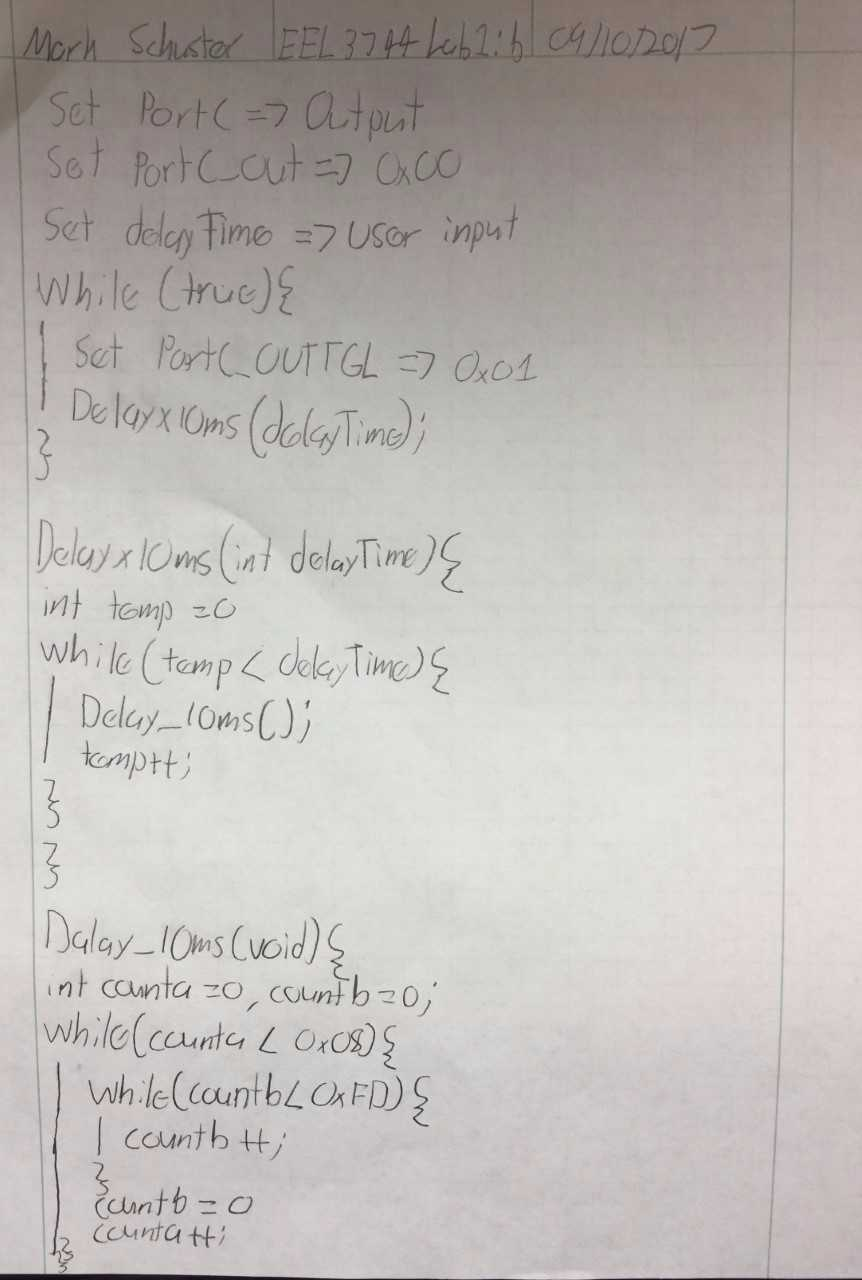 Mark Schuster | EEL 3744 Lab2:b | 09/10/2017
Set PortC => Output
Set PortC_out => 0x00
Set delayTime => User input
While (true){
Set PortC_OUTTGL => 0x01
Delayx10ms(delayTime);
}
Delayx10ms(int delayTime){
int temp = 0
while(temp < delayTime){
Delay_10ms();
temp++;
}
}
Dalay_10ms(void){
int counta = 0, countb = 0;
while(counta < 0x08){
while(countb < 0xFD){
countb++;
}
countb = 0
counta++;
}}